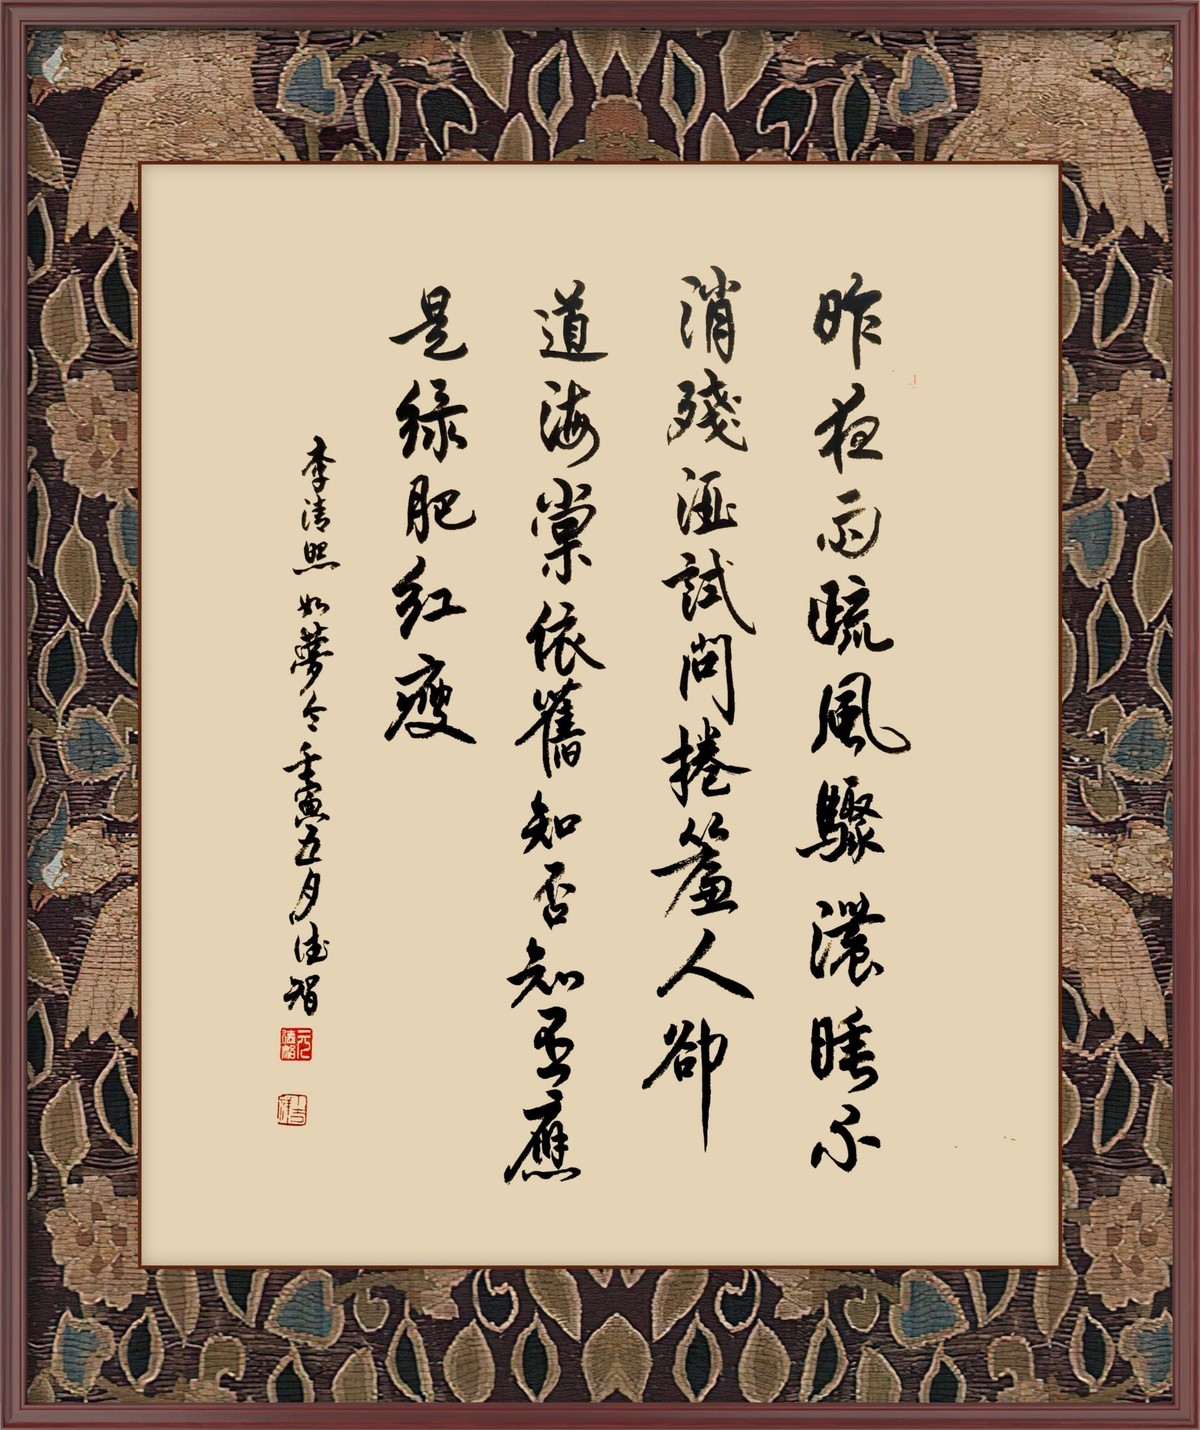 昨夜雨疏風驟濃睡不
消殘酒試問捲簾人卻
道海棠依舊知否知否應
是綠肥紅瘦
李清照如夢令壬寅五月德智